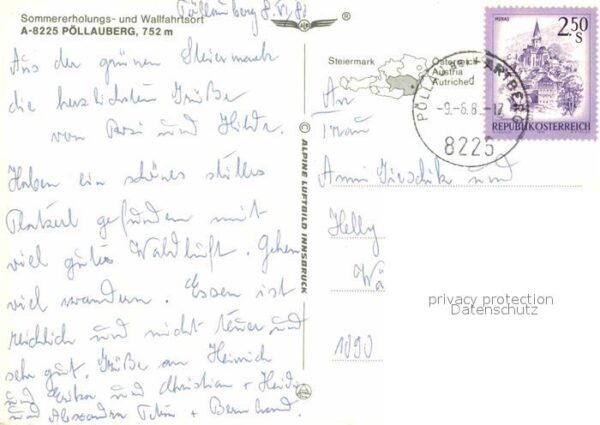 Pöllauberg 8.VI.83
Sommererholungs- und Wallfahrtsort
A-8225 PÖLLAUBERG, 752 m
Aus der grünen Steiermark
die herzlichsten Grüße
von Resi und Hilda.
Haben ein schönes stilles
Platzerl gefunden mit
viel guter Waldluft. Gehen
viel wandern. Essen ist
reichlich und nicht teuer und
sehr gut. Grüße an Heinrich
und Erika und Christian + Heidi
und Alexandra + Bernhard.
ALPINE LUFTBILD INNSBRUCK
Steiermark
Österreich
Austria
Autriche
8225
MURAU
2.50
S
REPUBLIK ÖSTERREICH
An
Frau
und
Helly
Wä
1090
privacy protection
Datenschutz